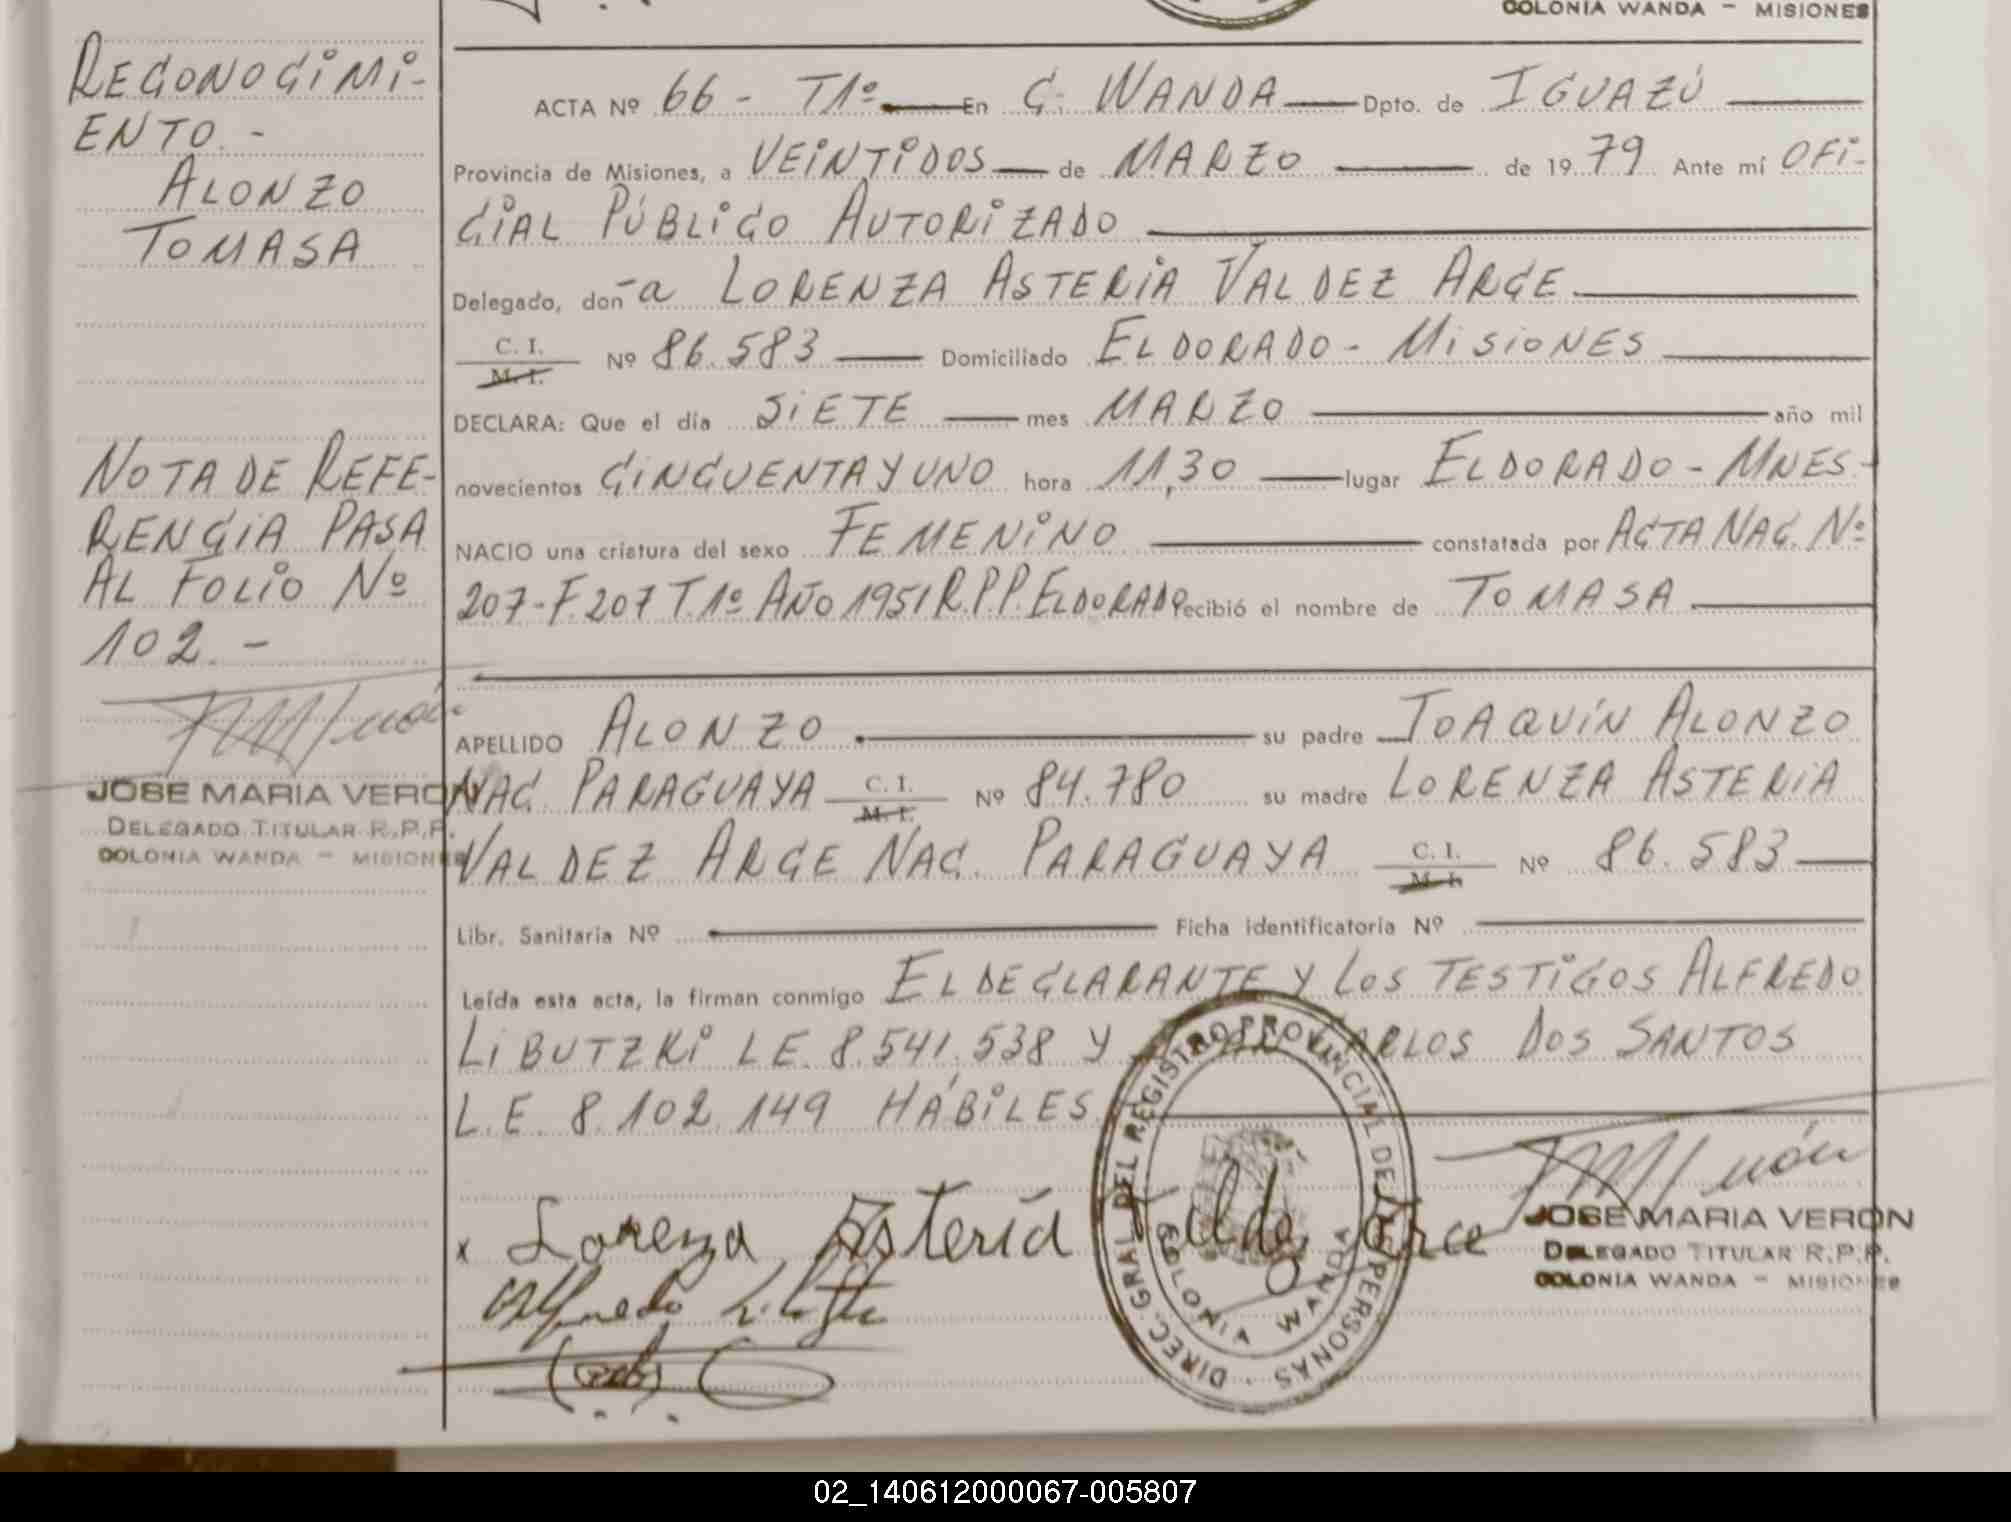 COLONIA WANDA - MISIONES
RECONOCIMI-
ENTO.-
ALONZO
TOMASA
NOTA DE REFE-
RENCIA PASA
AL FOLIO Nº
102.-
JOSE MARIA VERON
DELEGADO TITULAR R.P.P.
COLONIA WANDA - MISIONES
ACTA Nº 66 - T1º En C. WANDA Dpto. de IGUAZÚ
Provincia de Misiones, a VEINTIDOS de MARZO de 1979 Ante mí OFI-
CIAL PÚBLICO AUTORIZADO
Delegado, don-a LORENZA ASTERIA VALDEZ ARCE
C. I.
M. I.
Nº 86.583 Domiciliado ELDORADO - MISIONES
DECLARA: Que el día SIETE mes MARZO año mil
novecientos CINCUENTA Y UNO hora 11,30 lugar ELDORADO - MNES.-
NACIO una criatura del sexo FEMENINO constatada por ACTA NAC. Nº
207-F.207 T.1º AÑO 1951 R.P.P. ELDORADO recibió el nombre de TOMASA
APELLIDO ALONZO su padre JOAQUÍN ALONZO
NAC. PARAGUAYA C. I. M. I. Nº 84.780 su madre LORENZA ASTERIA
VALDEZ ARCE NAC. PARAGUAYA C. I. M. I. Nº 86.583
Libr. Sanitaria Nº Ficha identificatoria Nº
Leída esta acta, la firman conmigo EL DECLARANTE Y LOS TESTIGOS ALFREDO
LIBUTZKI L.E. 8.541.538 Y CARLOS DOS SANTOS
L.E. 8.102.149 HÁBILES
x Lorenza Asteria Valdez Arce
Alfredo
DIREC. GRAL. DEL REGISTRO PROVINCIAL DE PERSONAS
COLONIA WANDA
JOSE MARIA VERON
DELEGADO TITULAR R.P.P.
COLONIA WANDA - MISIONES
02_140612000067-005807